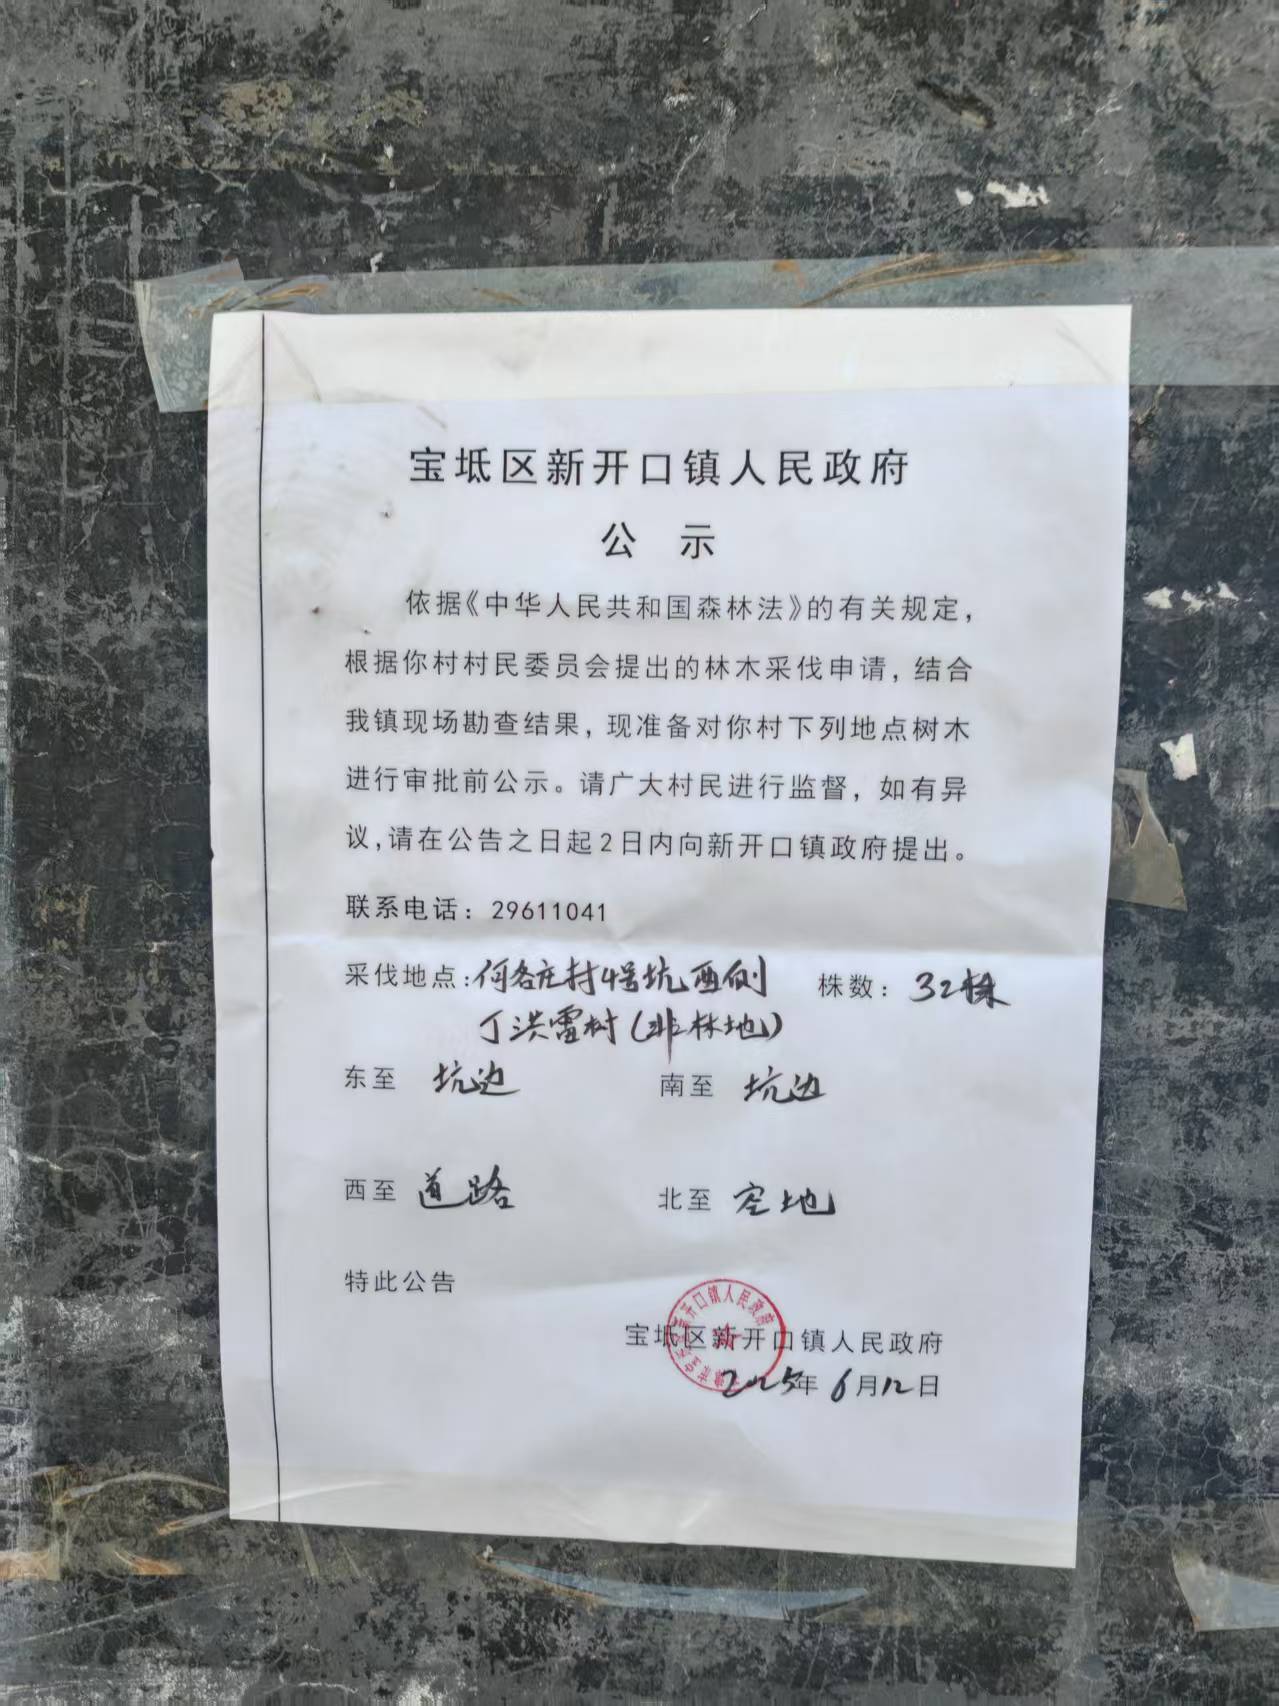 宝坻区新开口镇人民政府
公 示
依据《中华人民共和国森林法》的有关规定，
根据你村村民委员会提出的林木采伐申请，结合
我镇现场勘查结果，现准备对你村下列地点树木
进行审批前公示。请广大村民进行监督，如有异
议，请在公告之日起2日内向新开口镇政府提出。
联系电话：29611041
采伐地点：何各庄村4号坑西侧 株数：32株
丁洪雷树（非林地）
东至 坑边 南至 坑边
西至 道路 北至 空地
特此公告
宝坻区新开口镇人民政府
2025年6月12日